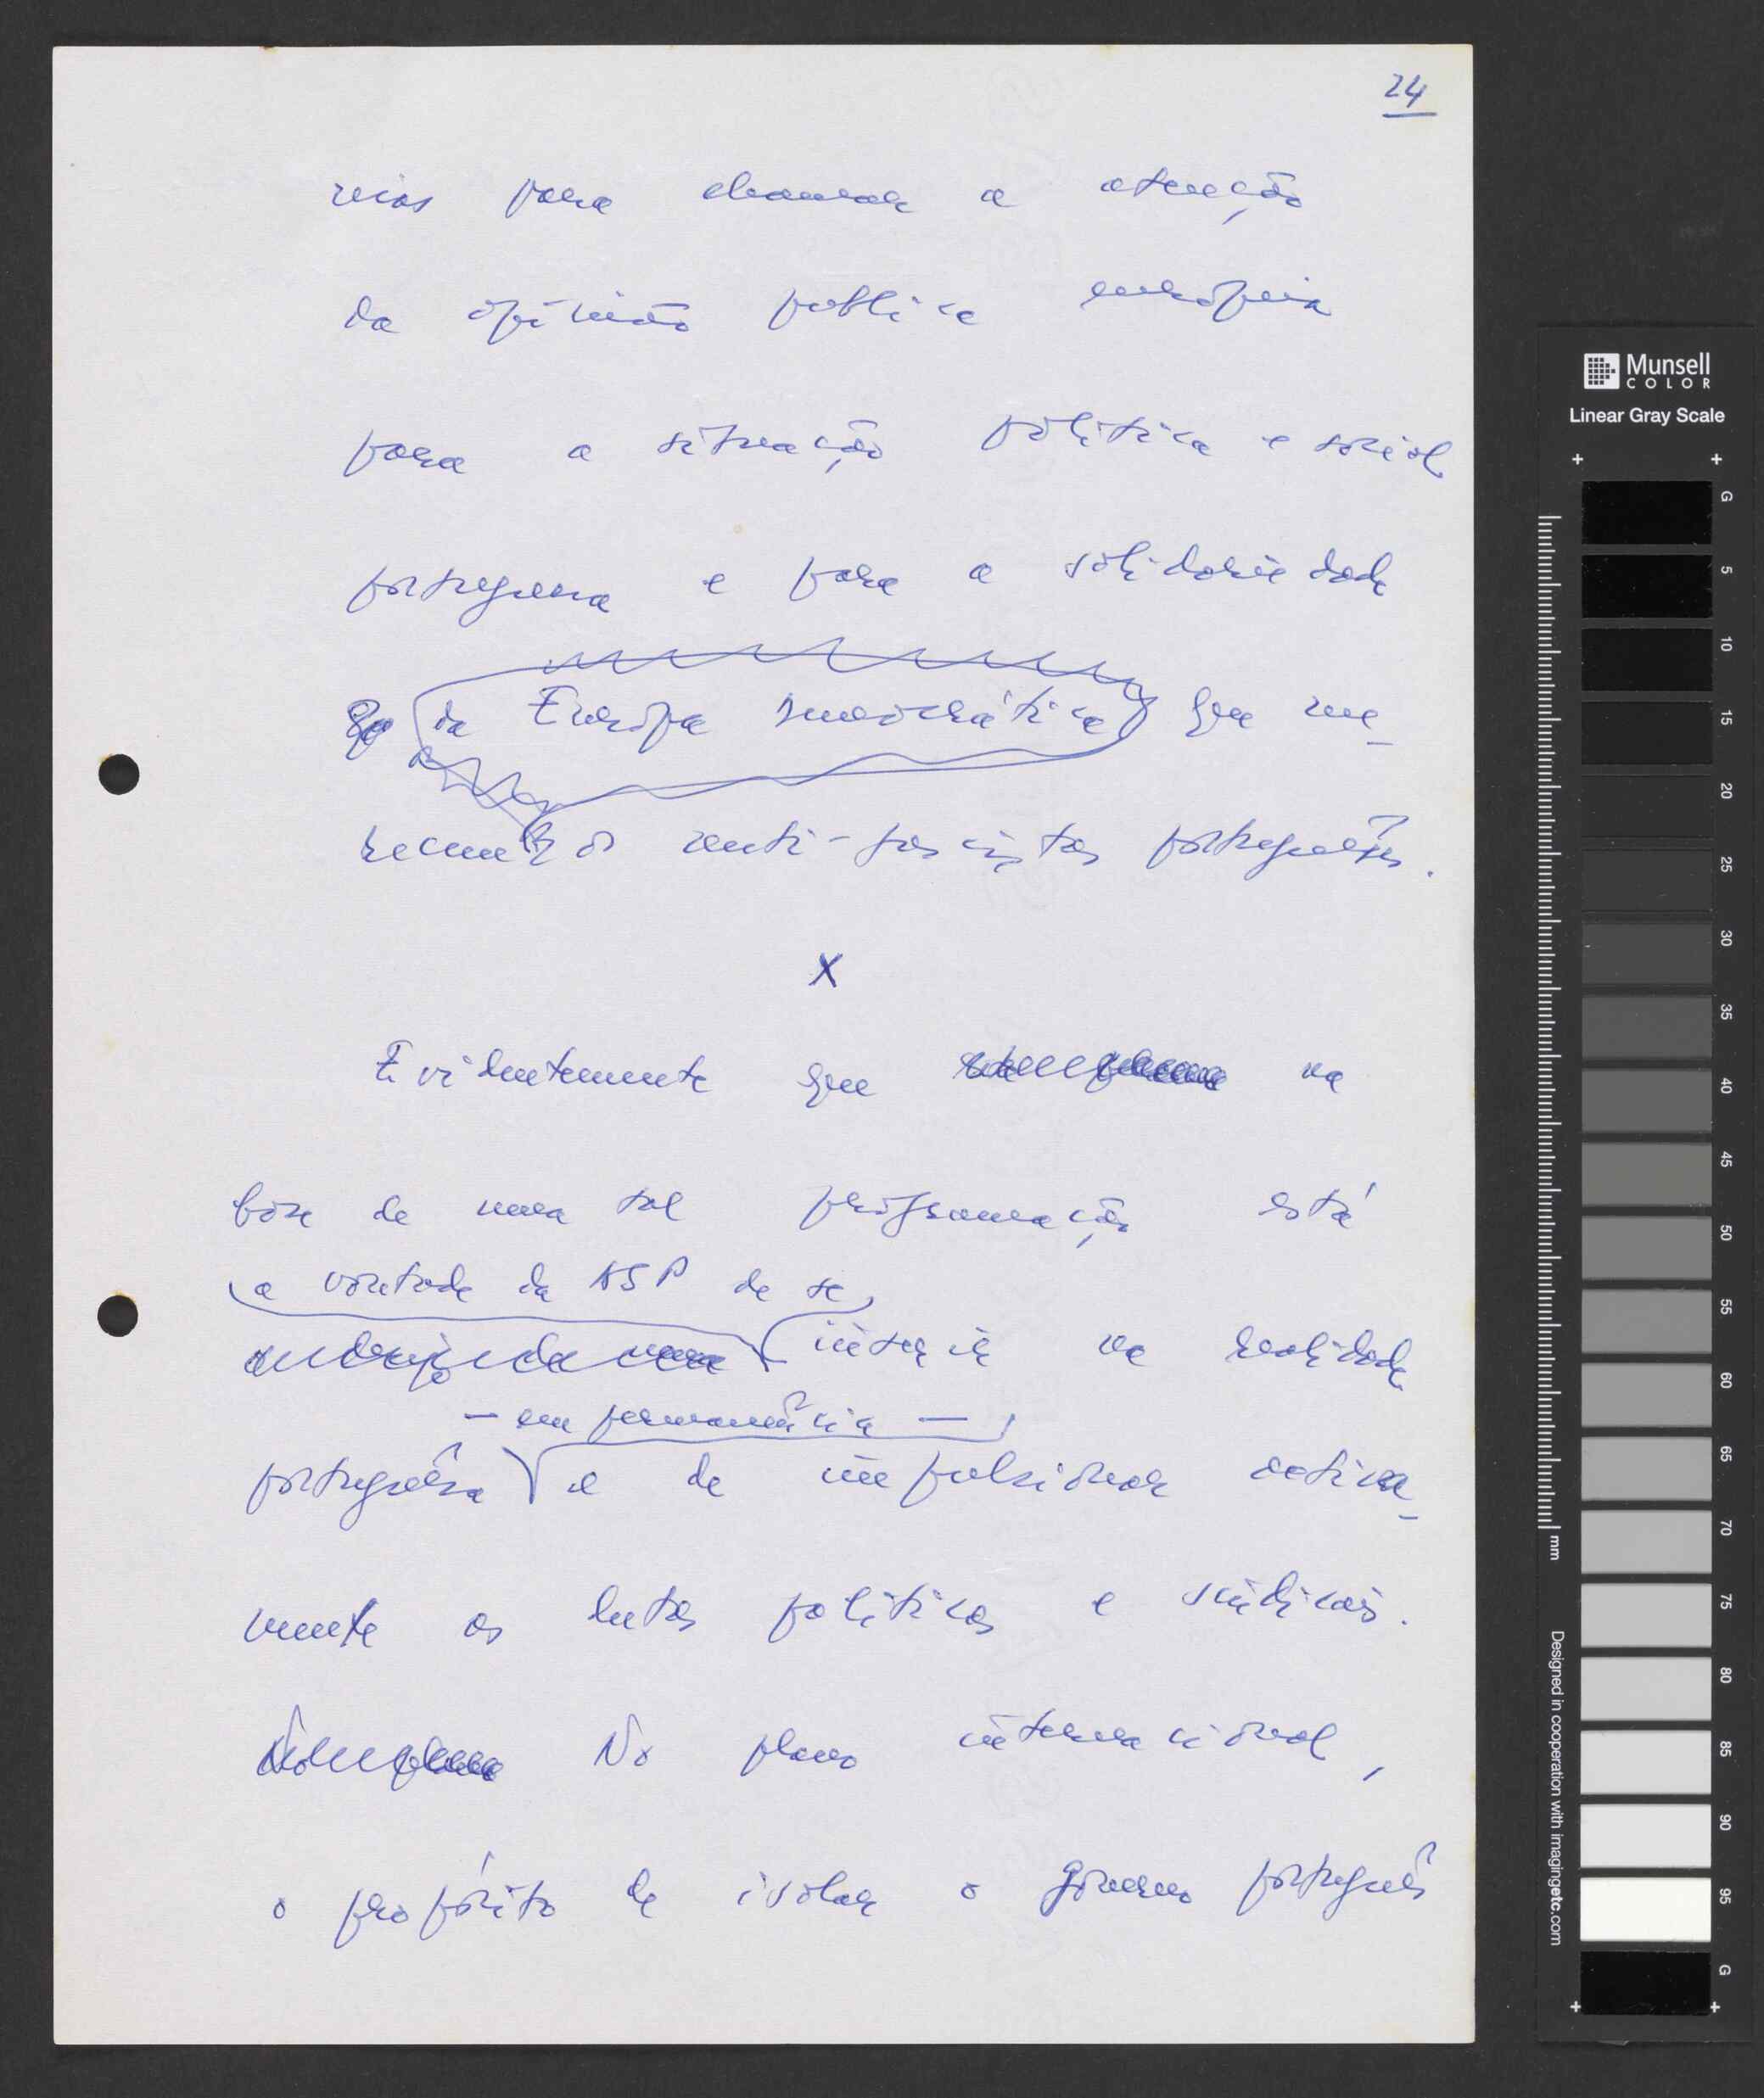 24
rios para chamar a atenção
da opinião publica europeia
para a situação politica e social
portuguesa e para a solidariedade
da Europa democrática que me-
recem os anti-fascistas portuguêses.
X
Evidentemente que na
base de uma tal programação está
a vontade da ASP de se
inserir na realidade
— em permanência —
portuguêsa e de impulsionar activa-
mente as lutas politicas e sindicais.
No plano internacional,
o propósito de isolar o governo português
Munsell
COLOR
Linear Gray Scale
G
5
10
15
20
25
30
35
40
45
50
55
60
65
70
75
80
85
90
95
G
mm
Designed in cooperation with imagingetc.com